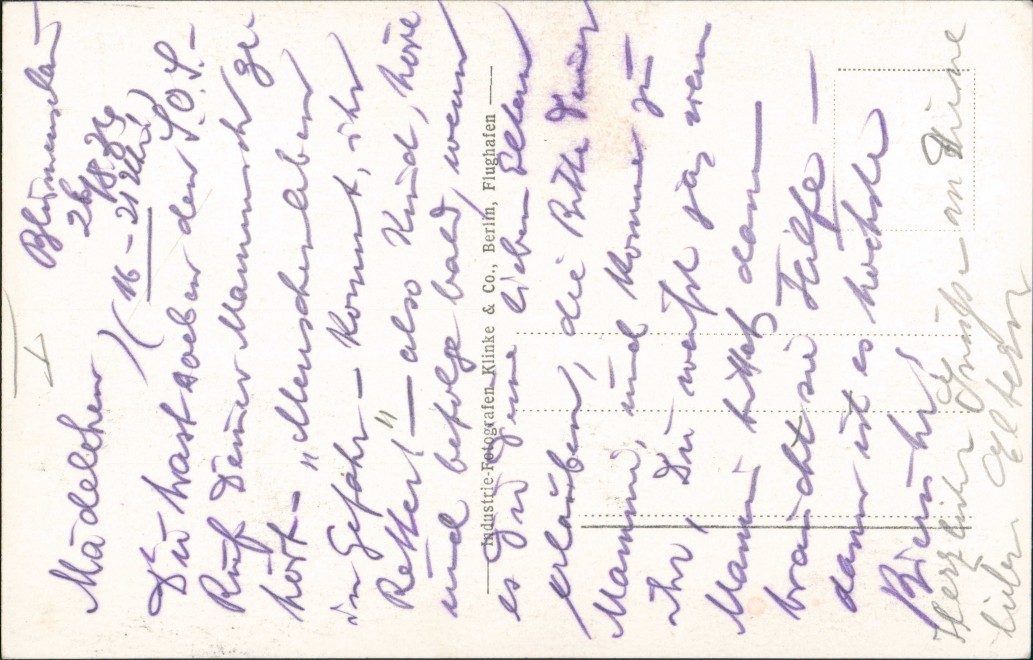 (16 - 21 Uhr)
Mädelchen
Du hast soeben den S.O.S.-
Ruf Deiner Mammi ge-
hört – "Menschenleben
in Gefahr – kommt, ihr
Retter!" – also Kind, höre
und befolge bald, wenn
es Dir Deine lieben Eltern
erlauben, die Bitte Deiner
Mammi, und komme zu
ihr, Du weißt ja, wenn
Mammi bittet dann –
braucht sie Hilfe –
dann ist es höchste
Herzliche Grüße an Deine
lieben Eltern
Industrie-Fotografen Klinke & Co., Berlin, Flughafen